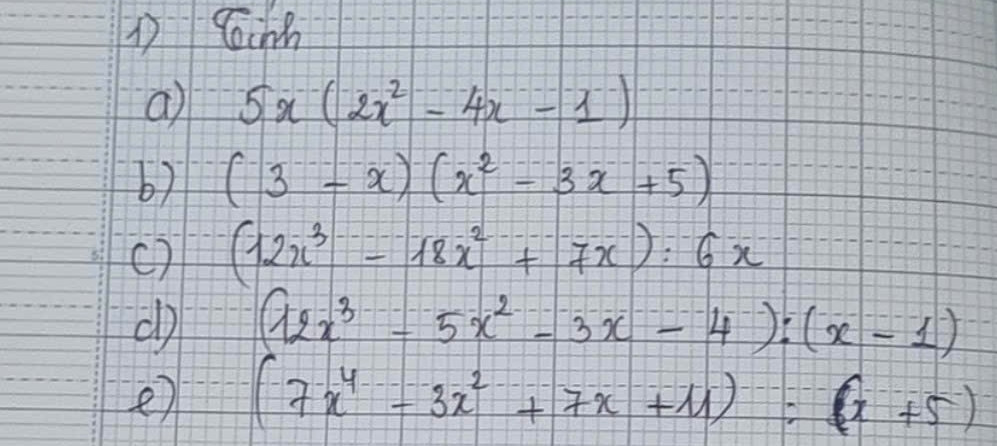 1) Tính
a) 5x (2x² - 4x - 1)
b) (3 - x) (x² - 3x + 5)
c) (12x³ - 18x² + 7x) : 6x
d) (12x³ - 5x² - 3x - 4) : (x - 1)
e) (7x⁴ - 3x² + 7x + 11) : (x + 5)